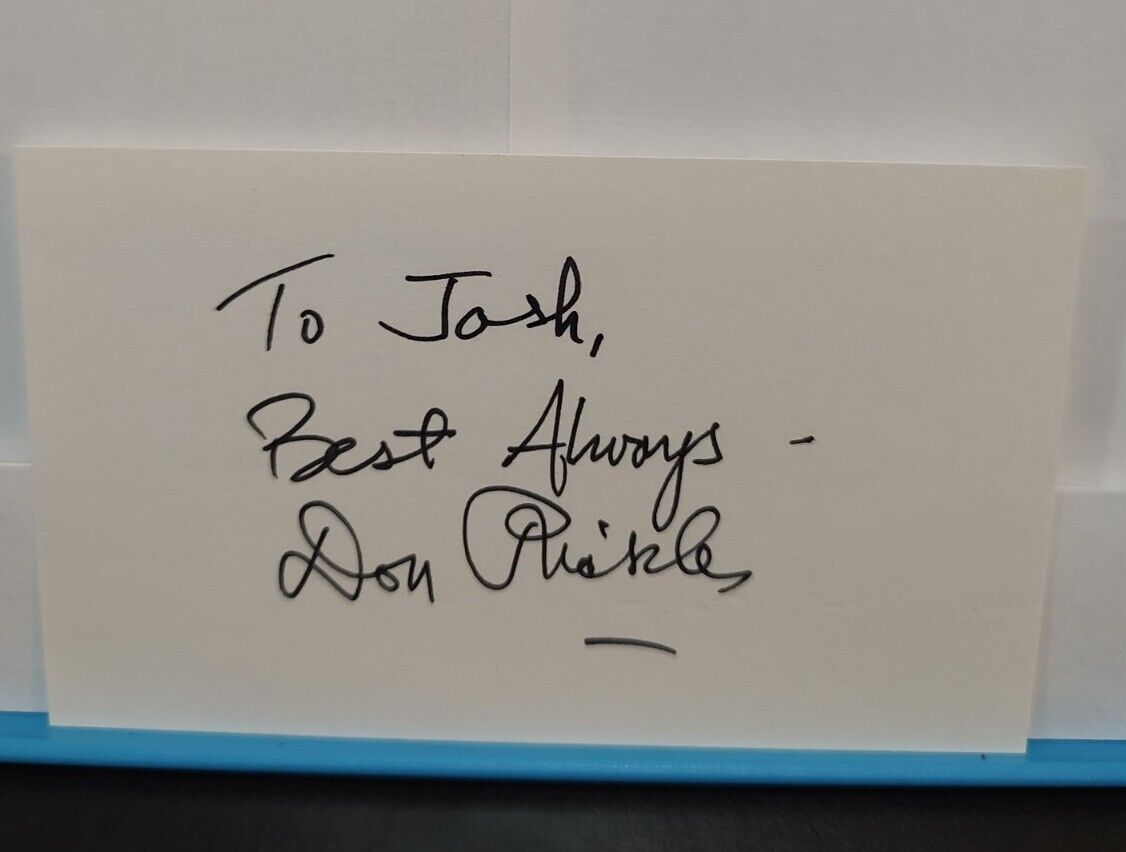 To Josh,
Best Always -
Don Rickles